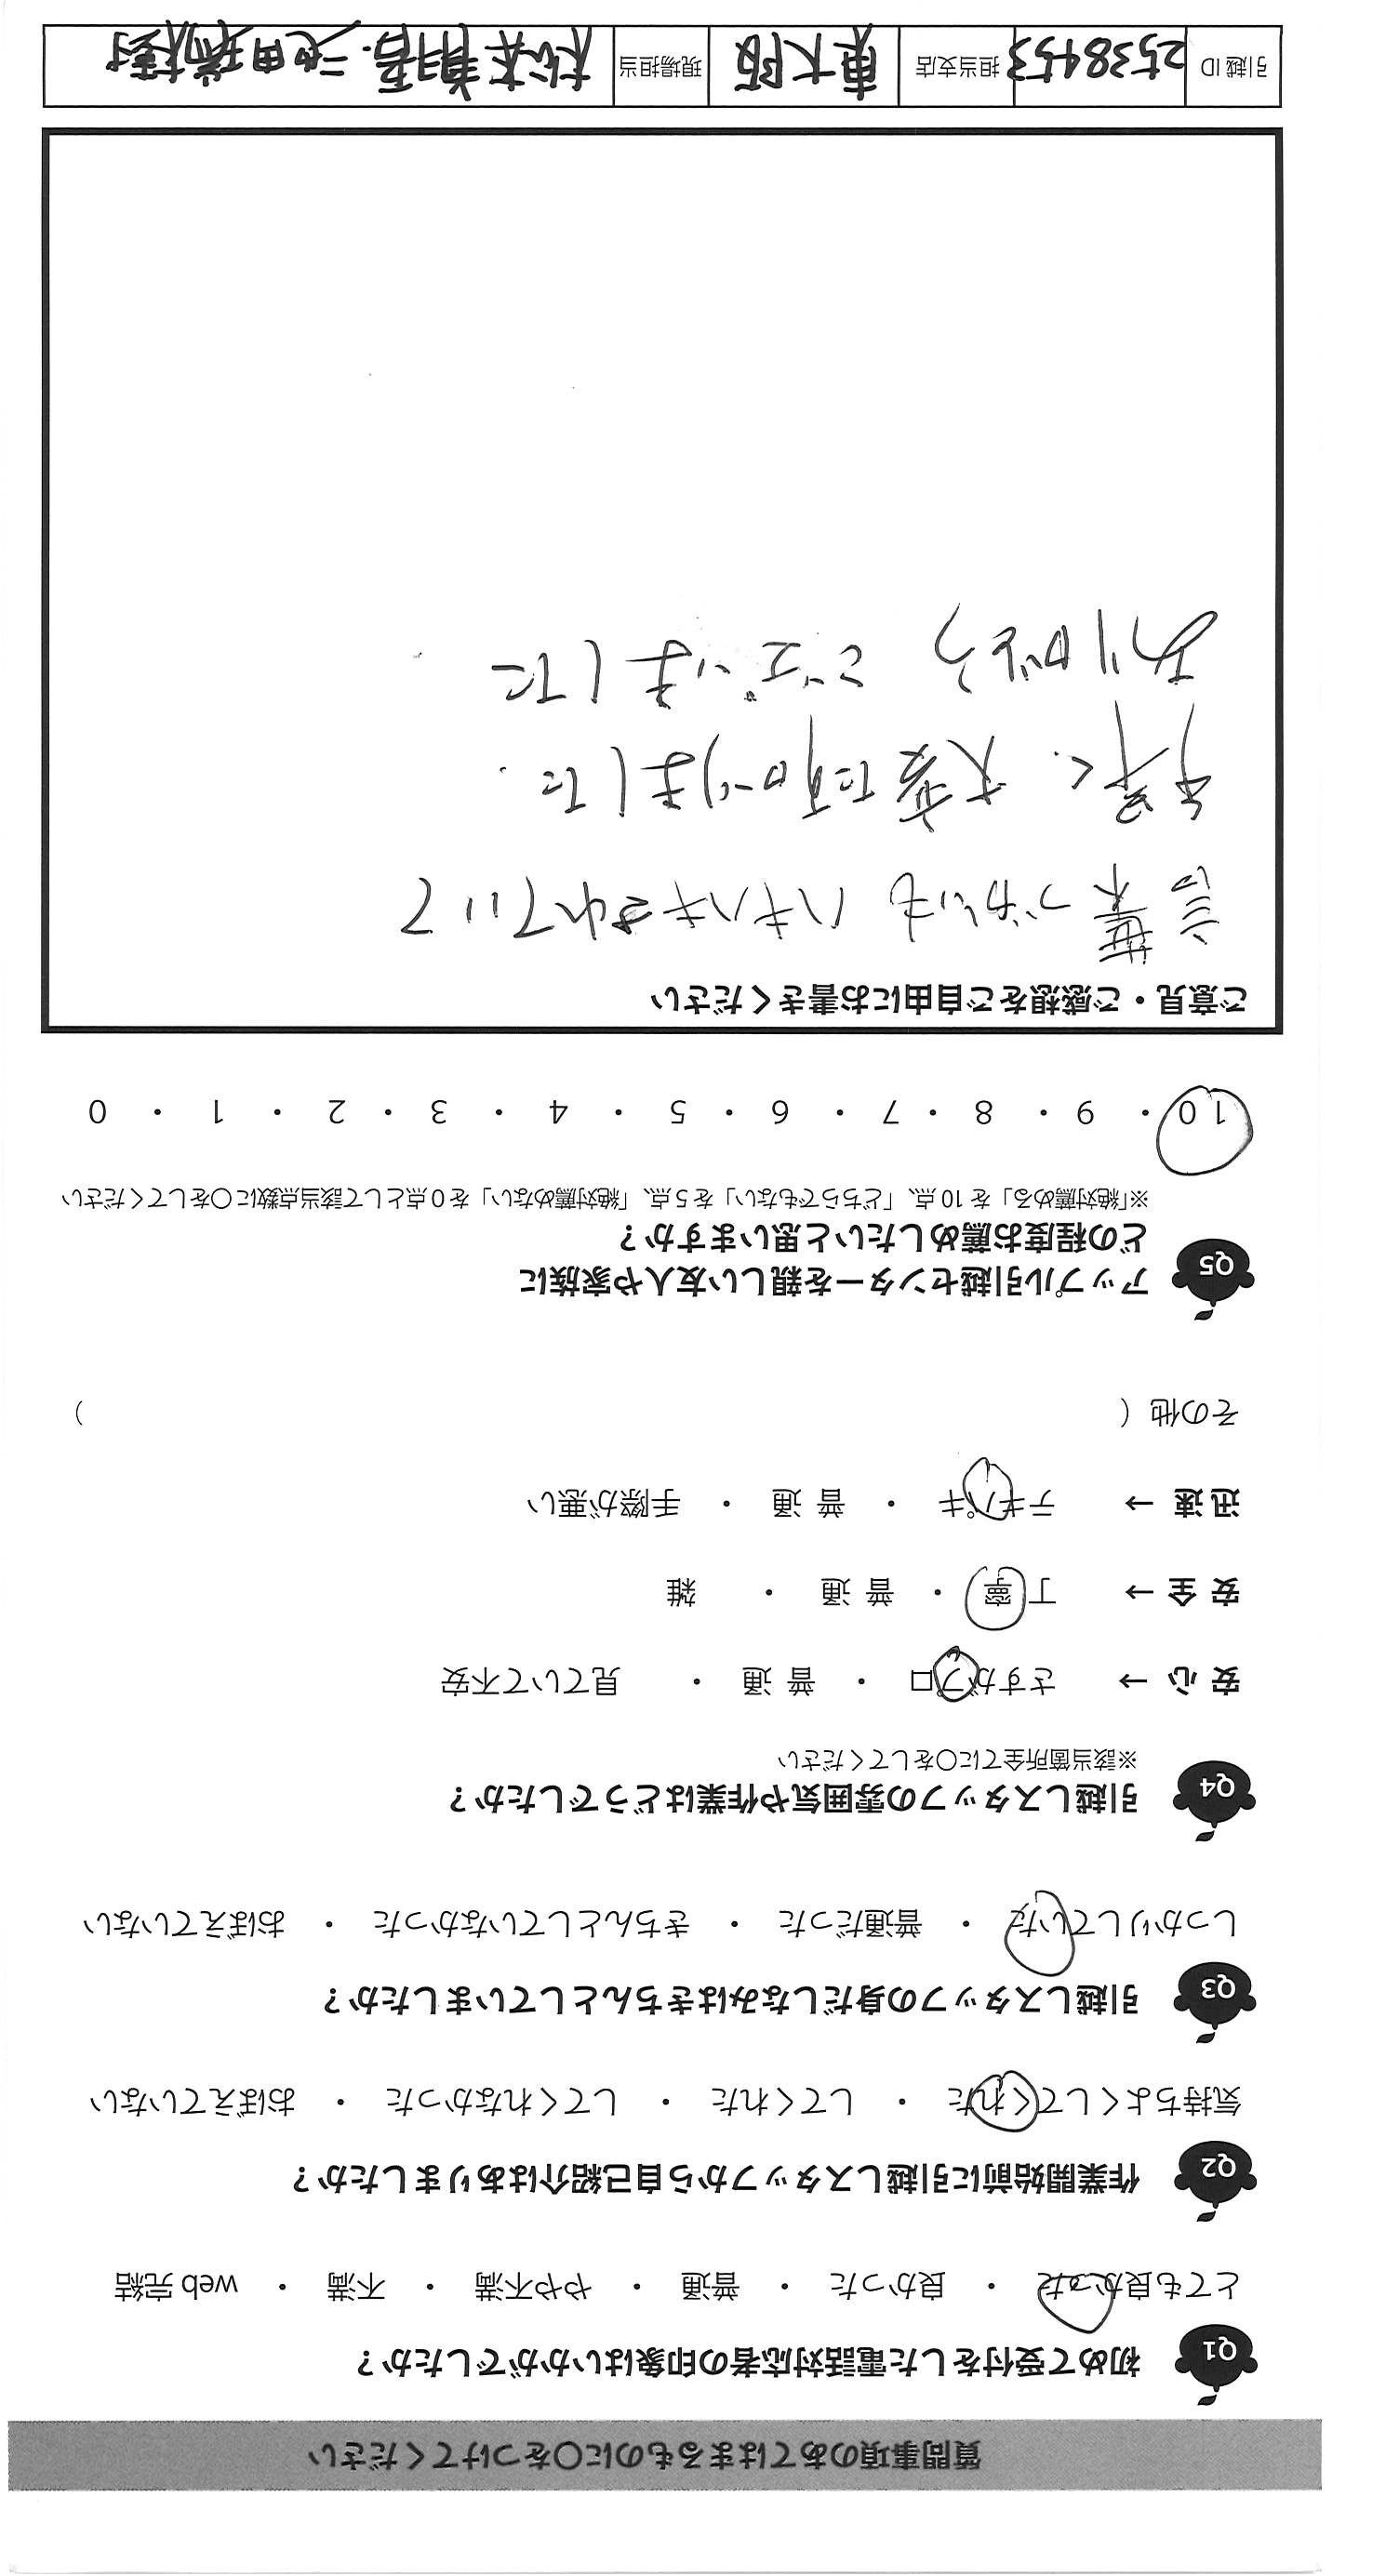 質問事項のあてはまるものに〇をつけてください
Q1 初めて受付をした電話対応者の印象はいかがでしたか？
とても良かった ・ 良かった ・ 普通 ・ やや不満 ・ 不満 ・ web 完結
Q2 作業開始前に引越しスタッフから自己紹介はありましたか？
気持ちよくしてくれた ・ してくれた ・ してくれなかった ・ おぼえていない
Q3 引越しスタッフの身だしなみはきちんとしていましたか？
しっかりしていた ・ 普通だった ・ きちんとしていなかった ・ おぼえていない
Q4 引越しスタッフの雰囲気や作業はどうでしたか？
※該当箇所全てに〇をしてください
安 心 → さすがプロ ・ 普 通 ・ 見ていて不安
安 全 → 丁 寧 ・ 普 通 ・ 雑
迅 速 → テキパキ ・ 普 通 ・ 手際が悪い
その他（ ）
Q5 アップル引越センターを親しい友人や家族に
どの程度お薦めしたいと思いますか？
※「絶対薦める」を 10 点、「どちらでもない」を 5 点、「絶対薦めない」を 0 点として該当点数に〇をしてください
10 ・ 9 ・ 8 ・ 7 ・ 6 ・ 5 ・ 4 ・ 3 ・ 2 ・ 1 ・ 0
ご意見・ご感想をご自由にお書きください
言葉づかいも ハキハキされていて
手早く、大変たすかりました.
ありがとう ございました
引越 ID 2538453 担当支店 東大阪 現場担当 松本 池田